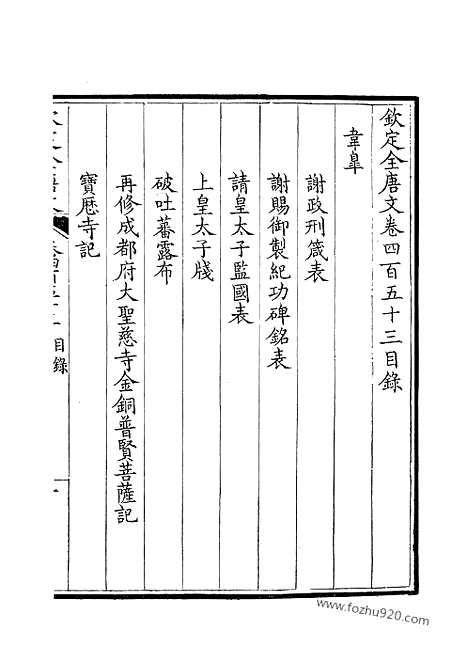 欽定全唐文卷四百五十三目錄
韋皐
謝政刑箴表
謝賜御製紀功碑銘表
請皇太子監國表
上皇太子牋
破吐蕃露布
再修成都府大聖慈寺金銅普賢菩薩記
寶厯寺記
目錄
一
www.fozhu920.com